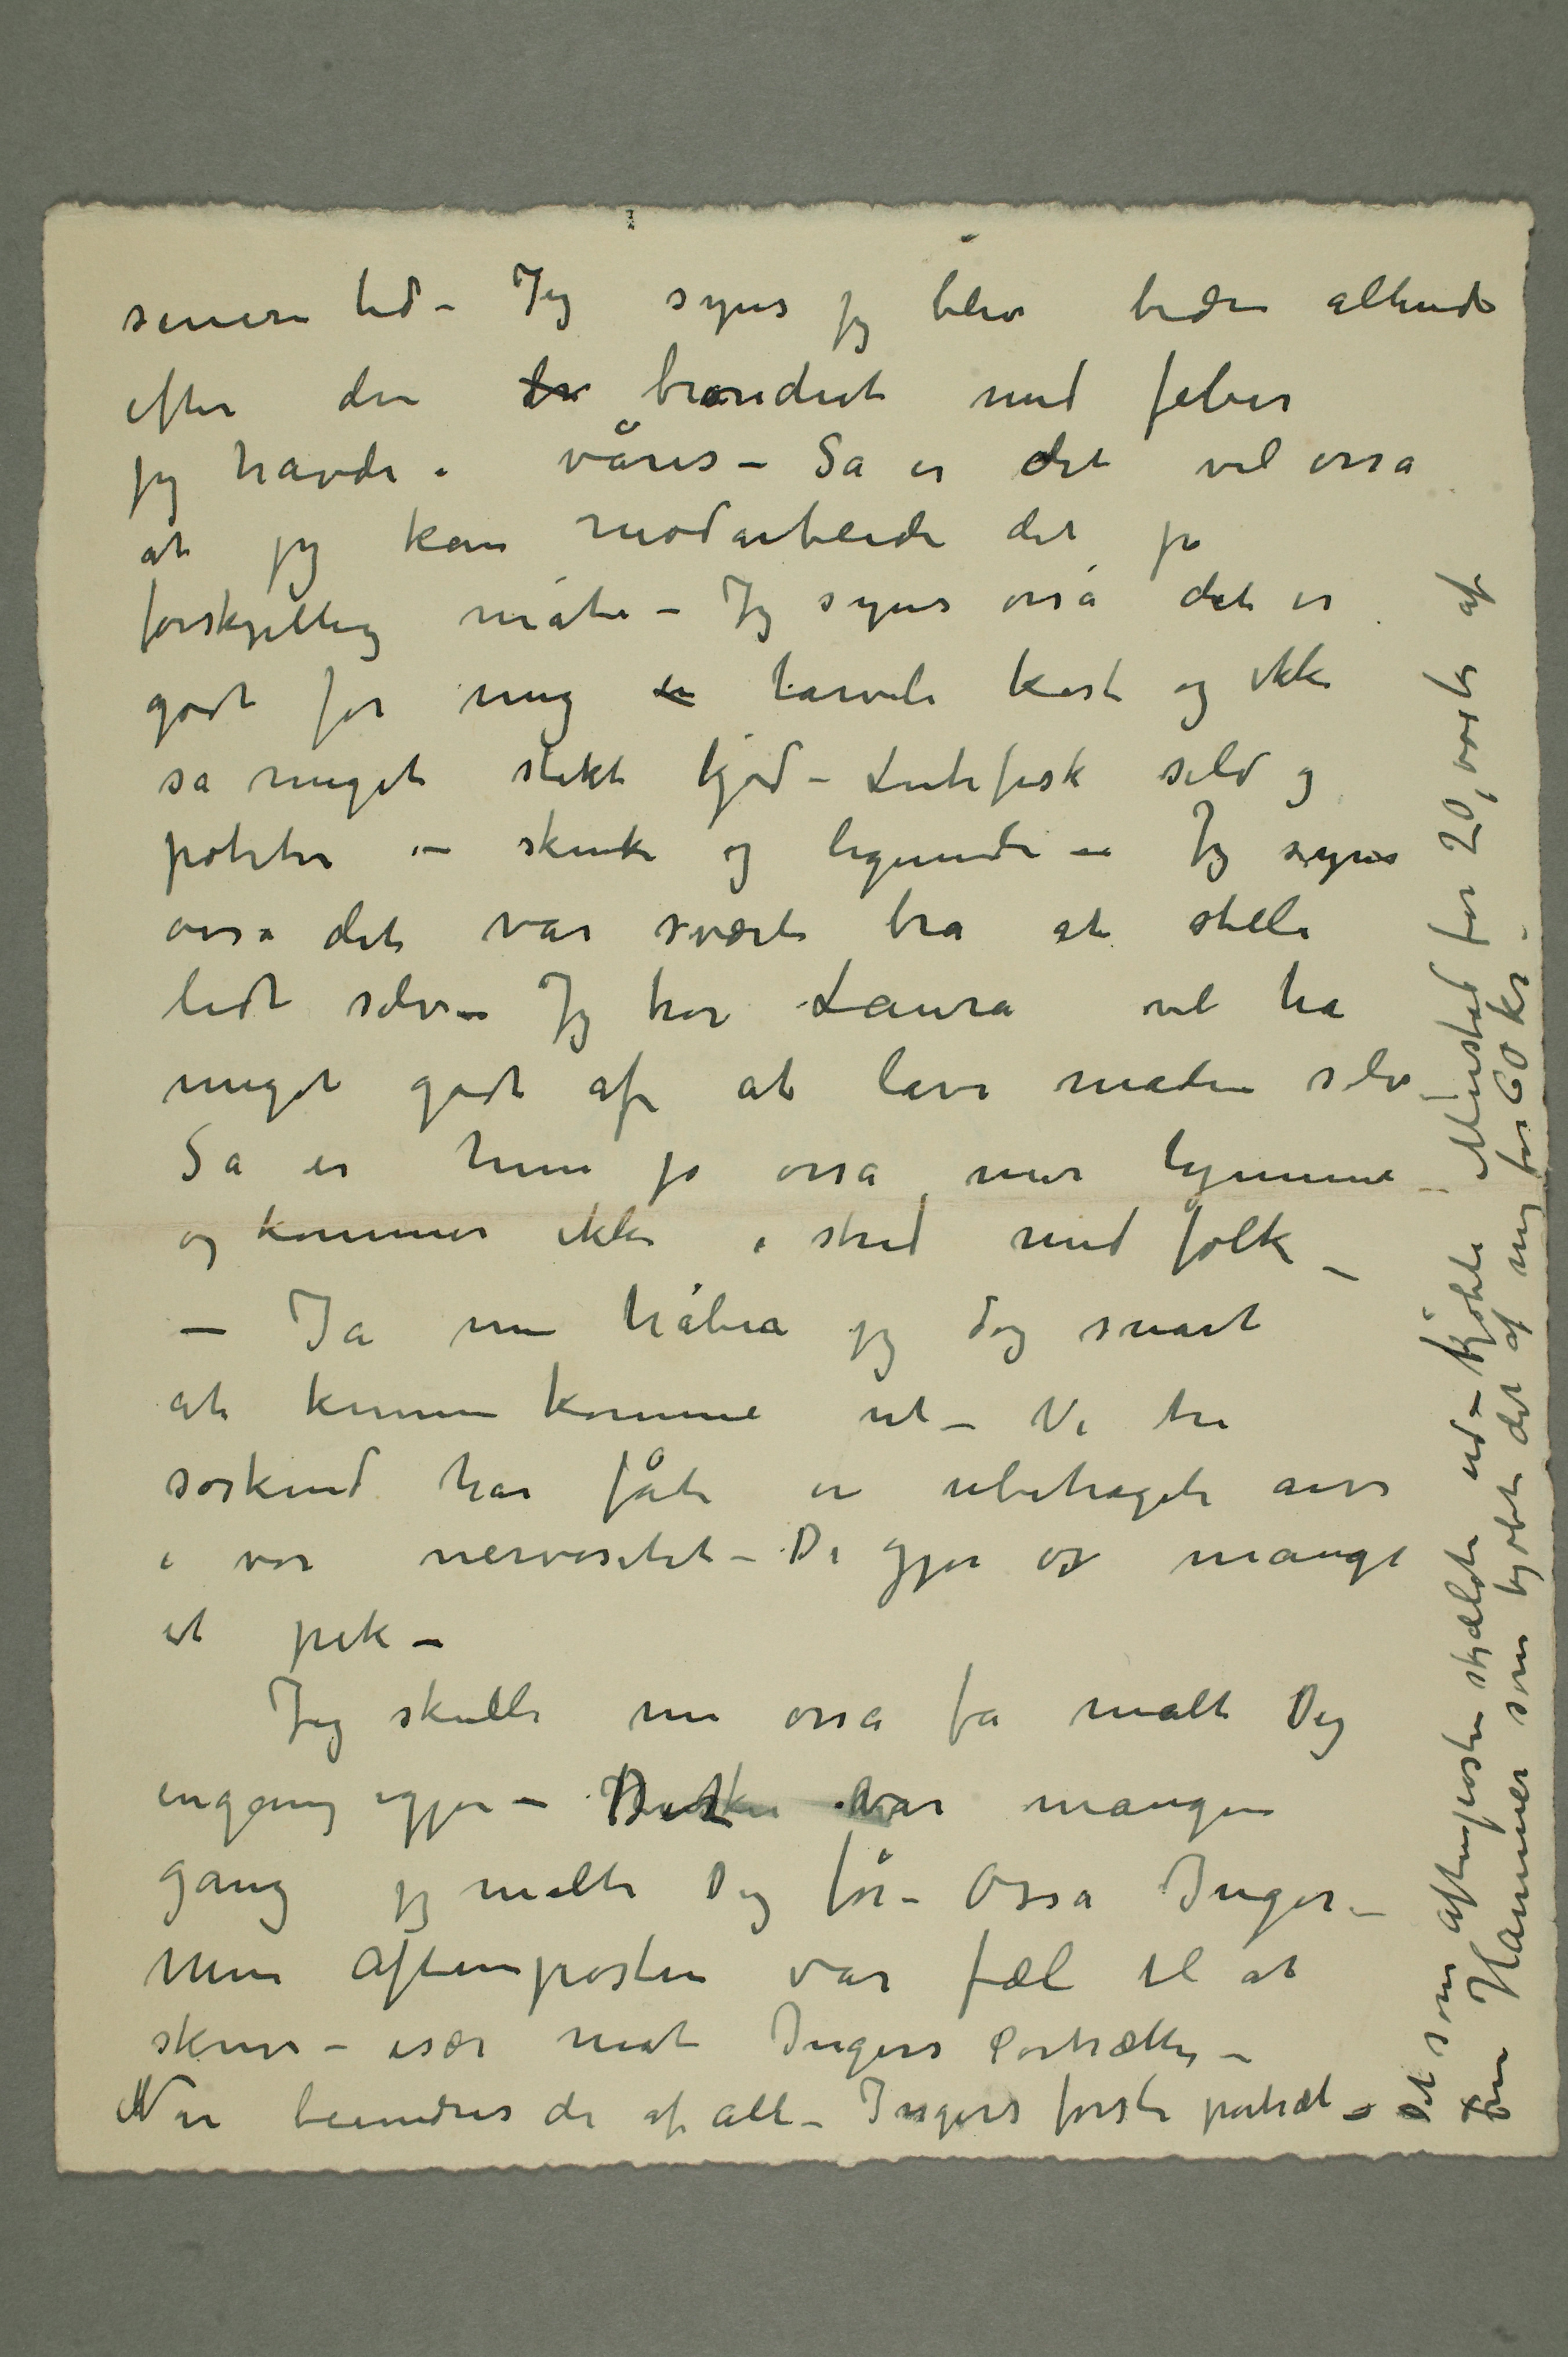 senere tid – Jeg synes jeg blev bedre alltindt
efter den br brondict med feber
jeg havde i våres – Så er det vel osså
at jeg kan modarbeide det på
forskjellig måte – Jeg synes osså det er
godt for mig en tarveli kost og ikke
så meget stekt kjød – Lutefisk sild og
poteter – skinke og lignende – Jeg synes
osså det var svært bra at stelle
lidt selv – Jeg tror Laura vil ha
meget godt af at lave maden selv –
Så er hun jo osså mer hjemme –
og kommer ikke i strid med folk –
– Ja nu håber jeg dog snart
at kunne komme ut – Vi tre
søskend har fåt en ubehageli arv
i vor nervøsitet – De gjør os mangt
et pek –
Jeg skulle nu osså få malt Dig
engang igjen – Det var mangen
gang jeg malte Dig før – Osså Inger –
Men Aftenposten var fæl til at
skrive – især mot Ingers Portrætter –
Nu beundres de af alle – Ingers første portræt –
Det som aftenposten skjældte ud – kjøbte Mustad for 20,000 kr af
Fru Hammer som kjøbte det af mig for 60 kr –